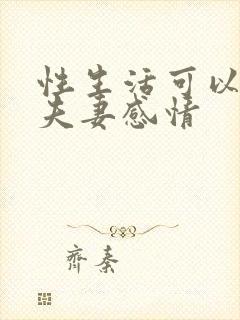 性生活可以
夫妻感情
齐秦